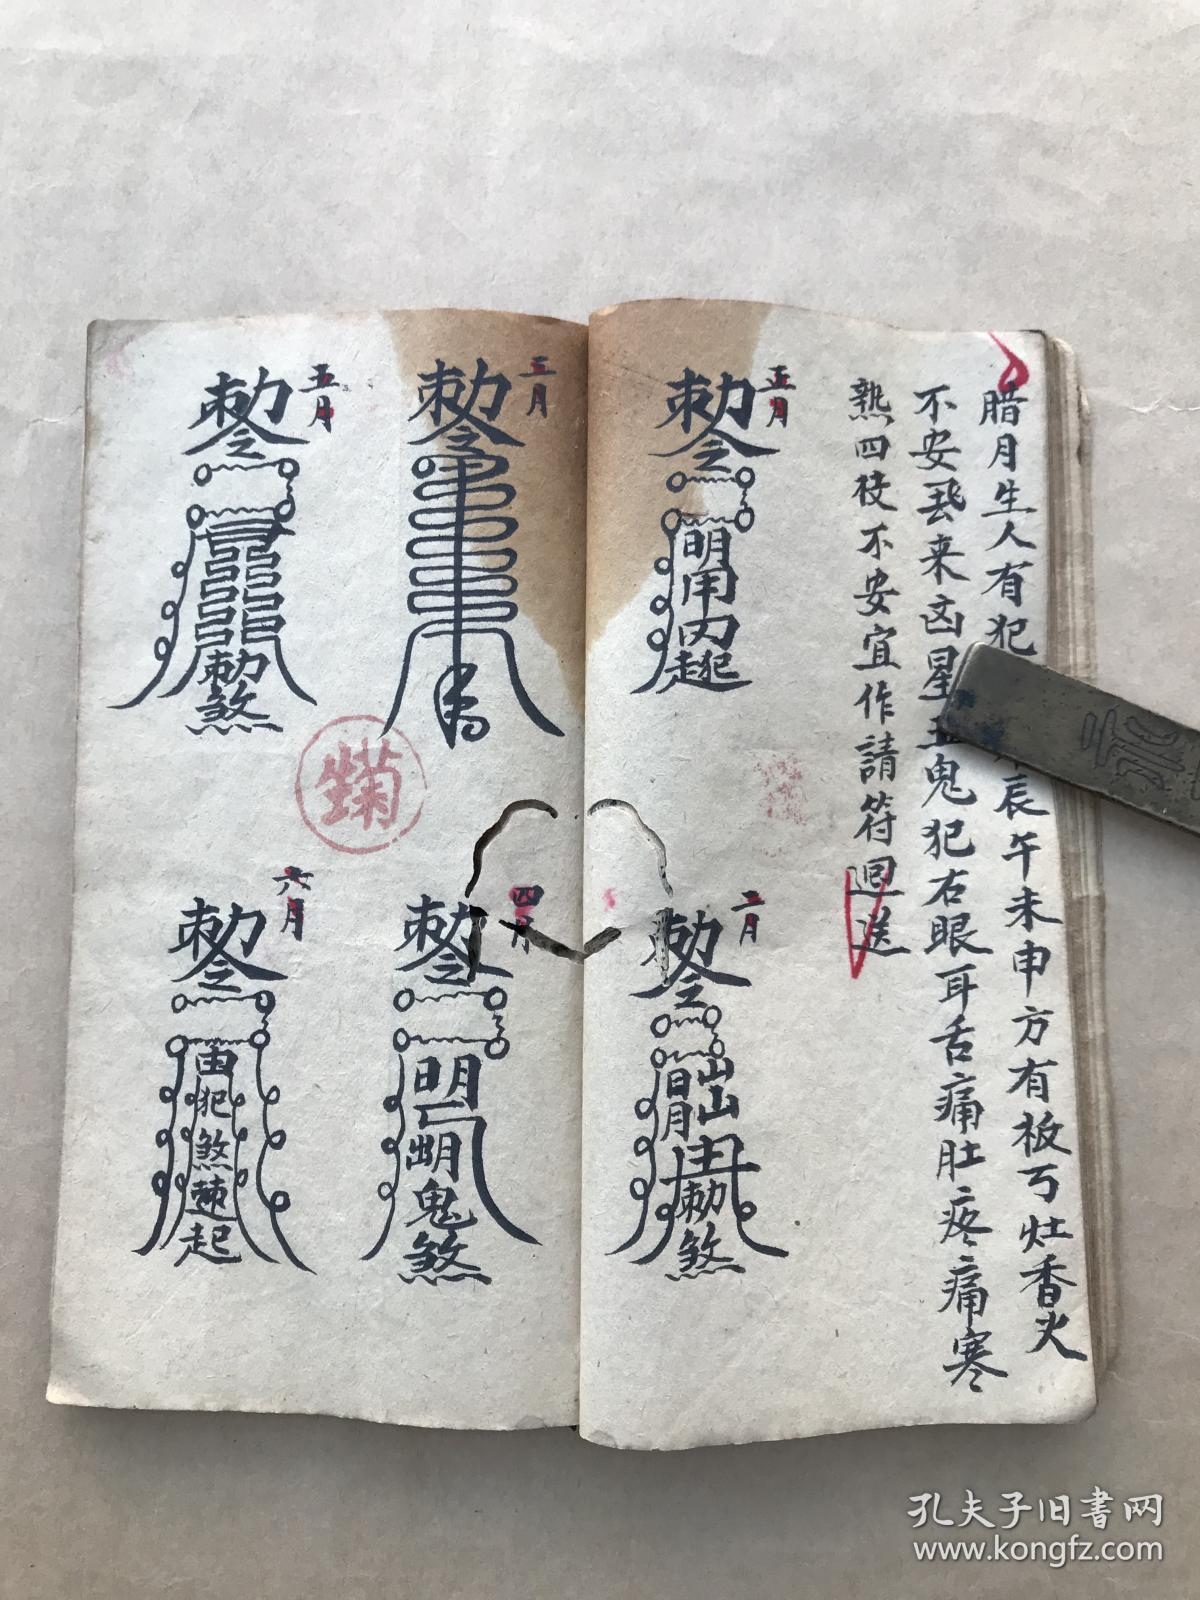 腊月生人有犯
辰午未申方有板丂灶香火
不安飛来凶星五鬼犯右眼耳舌痛肚疼痛寒
熱四肢不安宜作請符囬送
正月
敕令
明
用
内
起犯
二月
敕令
日月
出山
敕
煞
三月
敕令
四月
敕令
明
鬼
煞
五月
敕令
敕
煞
六月
敕令
由
犯
煞
起
孔夫子旧書网
www.kongfz.com